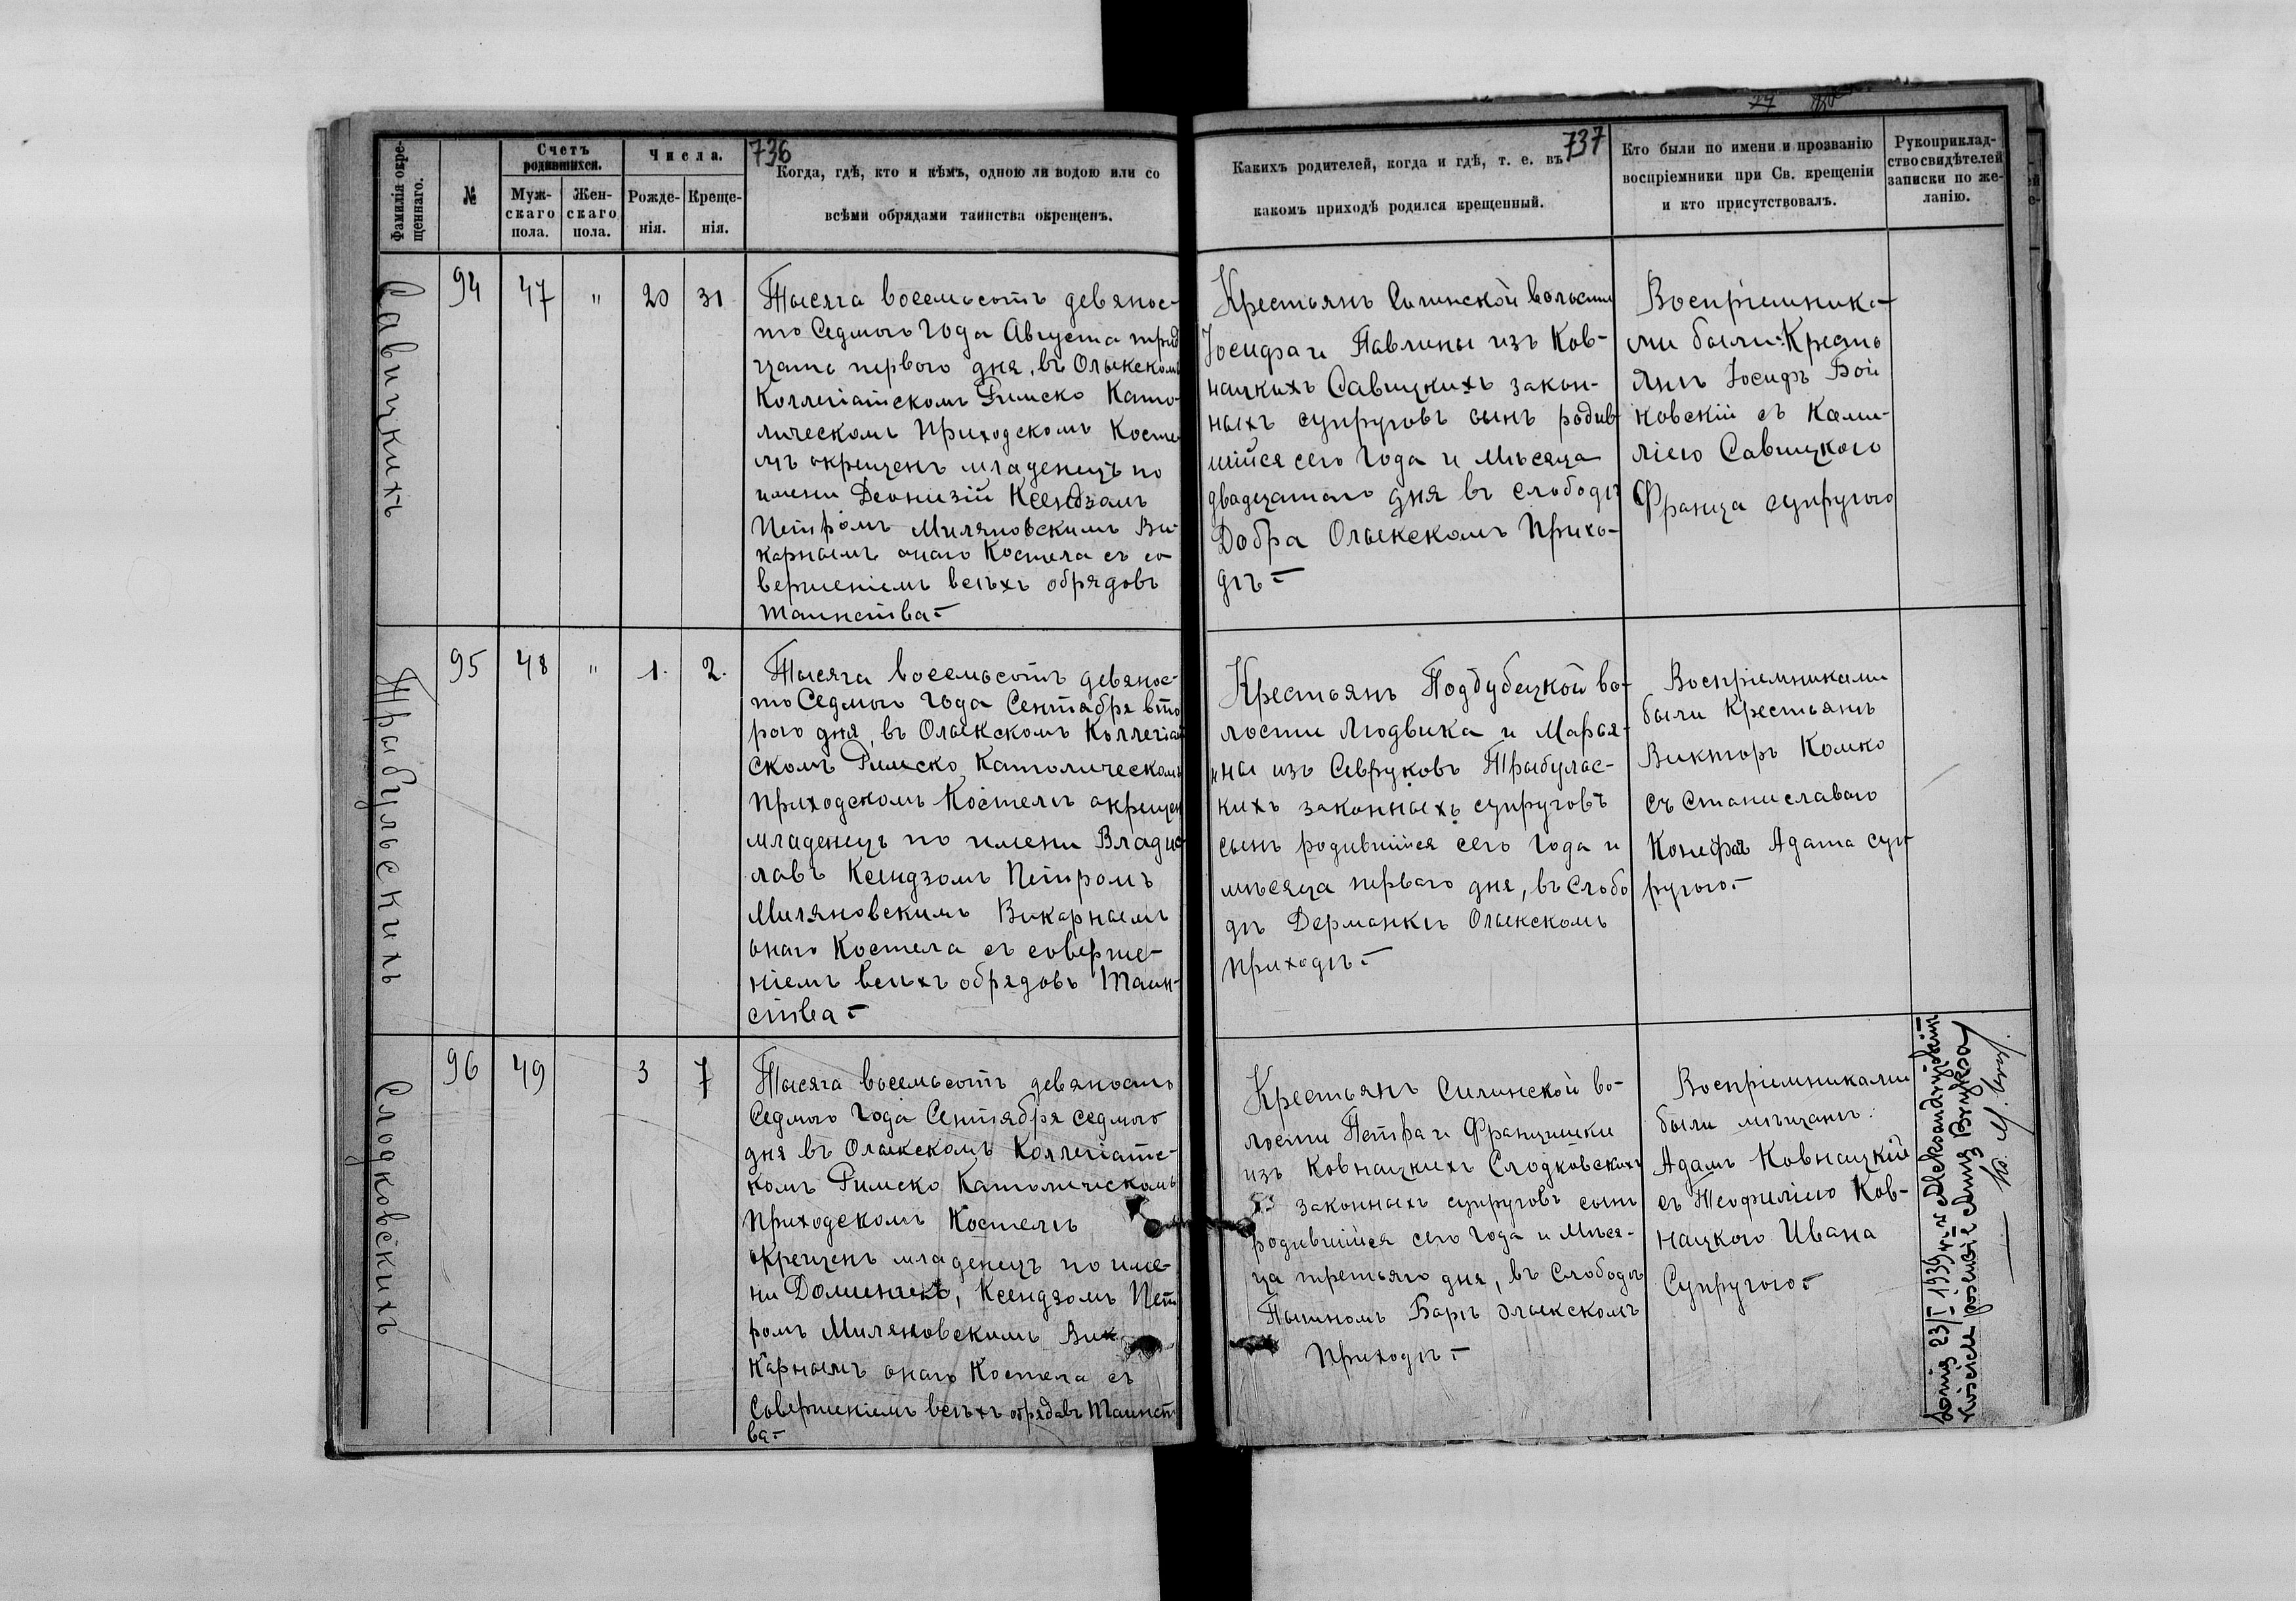 736
737
Фамилія окре-
щеннаго.
№
Счетъ
родившихся.
Муж-
скаго
пола.
Жен-
скаго
пола.
Числа.
Рожде-
нія.
Креще-
нія.
Когда, гдѣ, кто и кѣмъ, одною ли водою или со
всѣми обрядами таинства окрещенъ.
Какихъ родителей, когда и гдѣ, т. е. въ
какомъ приходѣ родился крещенный.
Кто были по имени и прозванію
воспріемники при Св. крещеніи
и кто присутствовалъ.
Рукоприклад-
ство свидѣтелей
записки по же-
ланію.
Савицкихъ
94 47 " 20 31
Тысяча восемьсотъ девянос-
то Седмого Года Августа трид
цать первого дня, въ Олыкскомъ
Коллегіатскомъ Римско Като-
лическомъ Приходскомъ Косте
лѣ окрещенъ младенецъ по
имени Деонизій Ксендзомъ
Петромъ Миляновскимъ Ви-
карнымъ онаго Костела съ со
вершеніемъ всѣхъ обрядовъ
Таинства
Крестьянъ Силинской волости
Іосифа и Павлины изъ Ков-
нацкихъ Савицкихъ закон-
ныхъ супруговъ сынъ родив-
шійся сего Года и Мѣсяца
двадцатаго дня въ слободѣ
Добра Олыкскомъ Прихо-
дѣ
Воспріемника-
ми были: Кресть
янъ Іосифъ Вой
ковскій съ Ками-
ліею Савицкого
Франца супругою
Трибульскихъ
95 48 " 1. 2.
Тысяча восемьсотъ девянос-
то Седмого Года Сентября вто
рого дня, въ Олыкскомъ Коллегіат
скомъ Римско Католическомъ
Приходскомъ Костелѣ окрещенъ
младенецъ по имени Владис
лавъ Ксендзомъ Петромъ
Миляновскимъ Викарнымъ
онаго Костела съ соверше-
ніемъ всѣхъ обрядовъ Таин-
ства
Крестьянъ Поддубецкой во-
лости Людвика и Марья-
нны изъ Севруковъ Трыбулс-
кихъ законныхъ супруговъ
сынъ родившійся сего Года и
мѣсяца первого дня, въ Слобо
дѣ Дерманкѣ Олыкскомъ
Приходѣ
Воспріемниками
были Крестьянъ
Викторъ Комко
съ Станиславою
Адама суп-
ругою
Слодковскихъ
96 49 3 7
Тысяча восемьсотъ девяносто
Седмого Года Сентября седмого
дня въ Олыкскомъ Коллегіатс-
комъ Римско Католическомъ
Приходскомъ Костелѣ
окрещенъ младенецъ по име-
ни Доминикъ, Ксендзомъ Пет
ромъ Миляновскимъ Вик
карнымъ онаго Костела съ
Совершеніемъ всѣхъ обрядовъ Таинст
ва
Крестьянъ Силинской во-
лости Петра и Францишки
изъ Ковнацкихъ Слодковскихъ
законныхъ супруговъ сынъ
родившійся сего Года и Мѣся-
ца третьяго дня, въ Слободѣ
Пьяномъ Барѣ Олыкскомъ
Приходѣ
Воспріемниками
были мѣщанъ:
Адамъ Ковнацкій
съ Теофиліею Ков-
нацкого Ивана
Супругою
dnia 23/I 1939 r. w Aleksandryjskim
kościele poślubił Annę